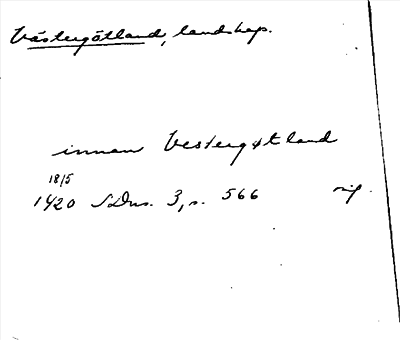 Västergötland, landskap.
innan Vestergøtland
18/5
1420 SDns. 3, s. 566 orig.